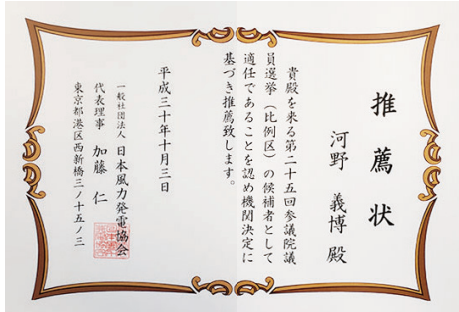 推薦状
河野 義博 殿
貴殿を来る第二十五回参議院議
員選挙(比例区)の候補者として
適任であることを認め機関決定に
基づき推薦致します。
平成三十年十月三日
一般社団法人 日本風力発電協会
代表理事 加藤 仁
東京都港区西新橋三ノ十五ノ三